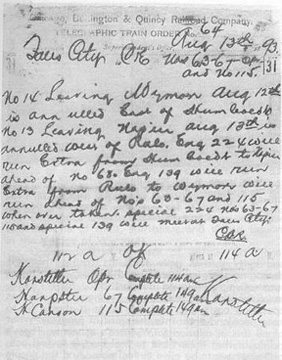 Chicago, Burlington & Quincy Railroad Company.
TELEGRAPHIC TRAIN ORDER No. 64
Aug 13th 93
Falls City, Nos 63-67
131 and No 115. 131
No 14 Leaving Wymore Aug 12th
is annulled East of Humboldt
No 13 Leaving Napier Aug 13th is
annulled west of Rulo, Eng 224 will
run Extra from Humboldt to Napier
ahead of No 63. Eng 139 will run
Extra from Rulo to Wymore will
run ahead of No's 63-67 and 115
when over taken. Special 224 Nos 63-67
115 and special 139 will meet at Falls City.
112 a 114 a
Opr Complete 114 am
67 Complete 149am
115 Complete 149am